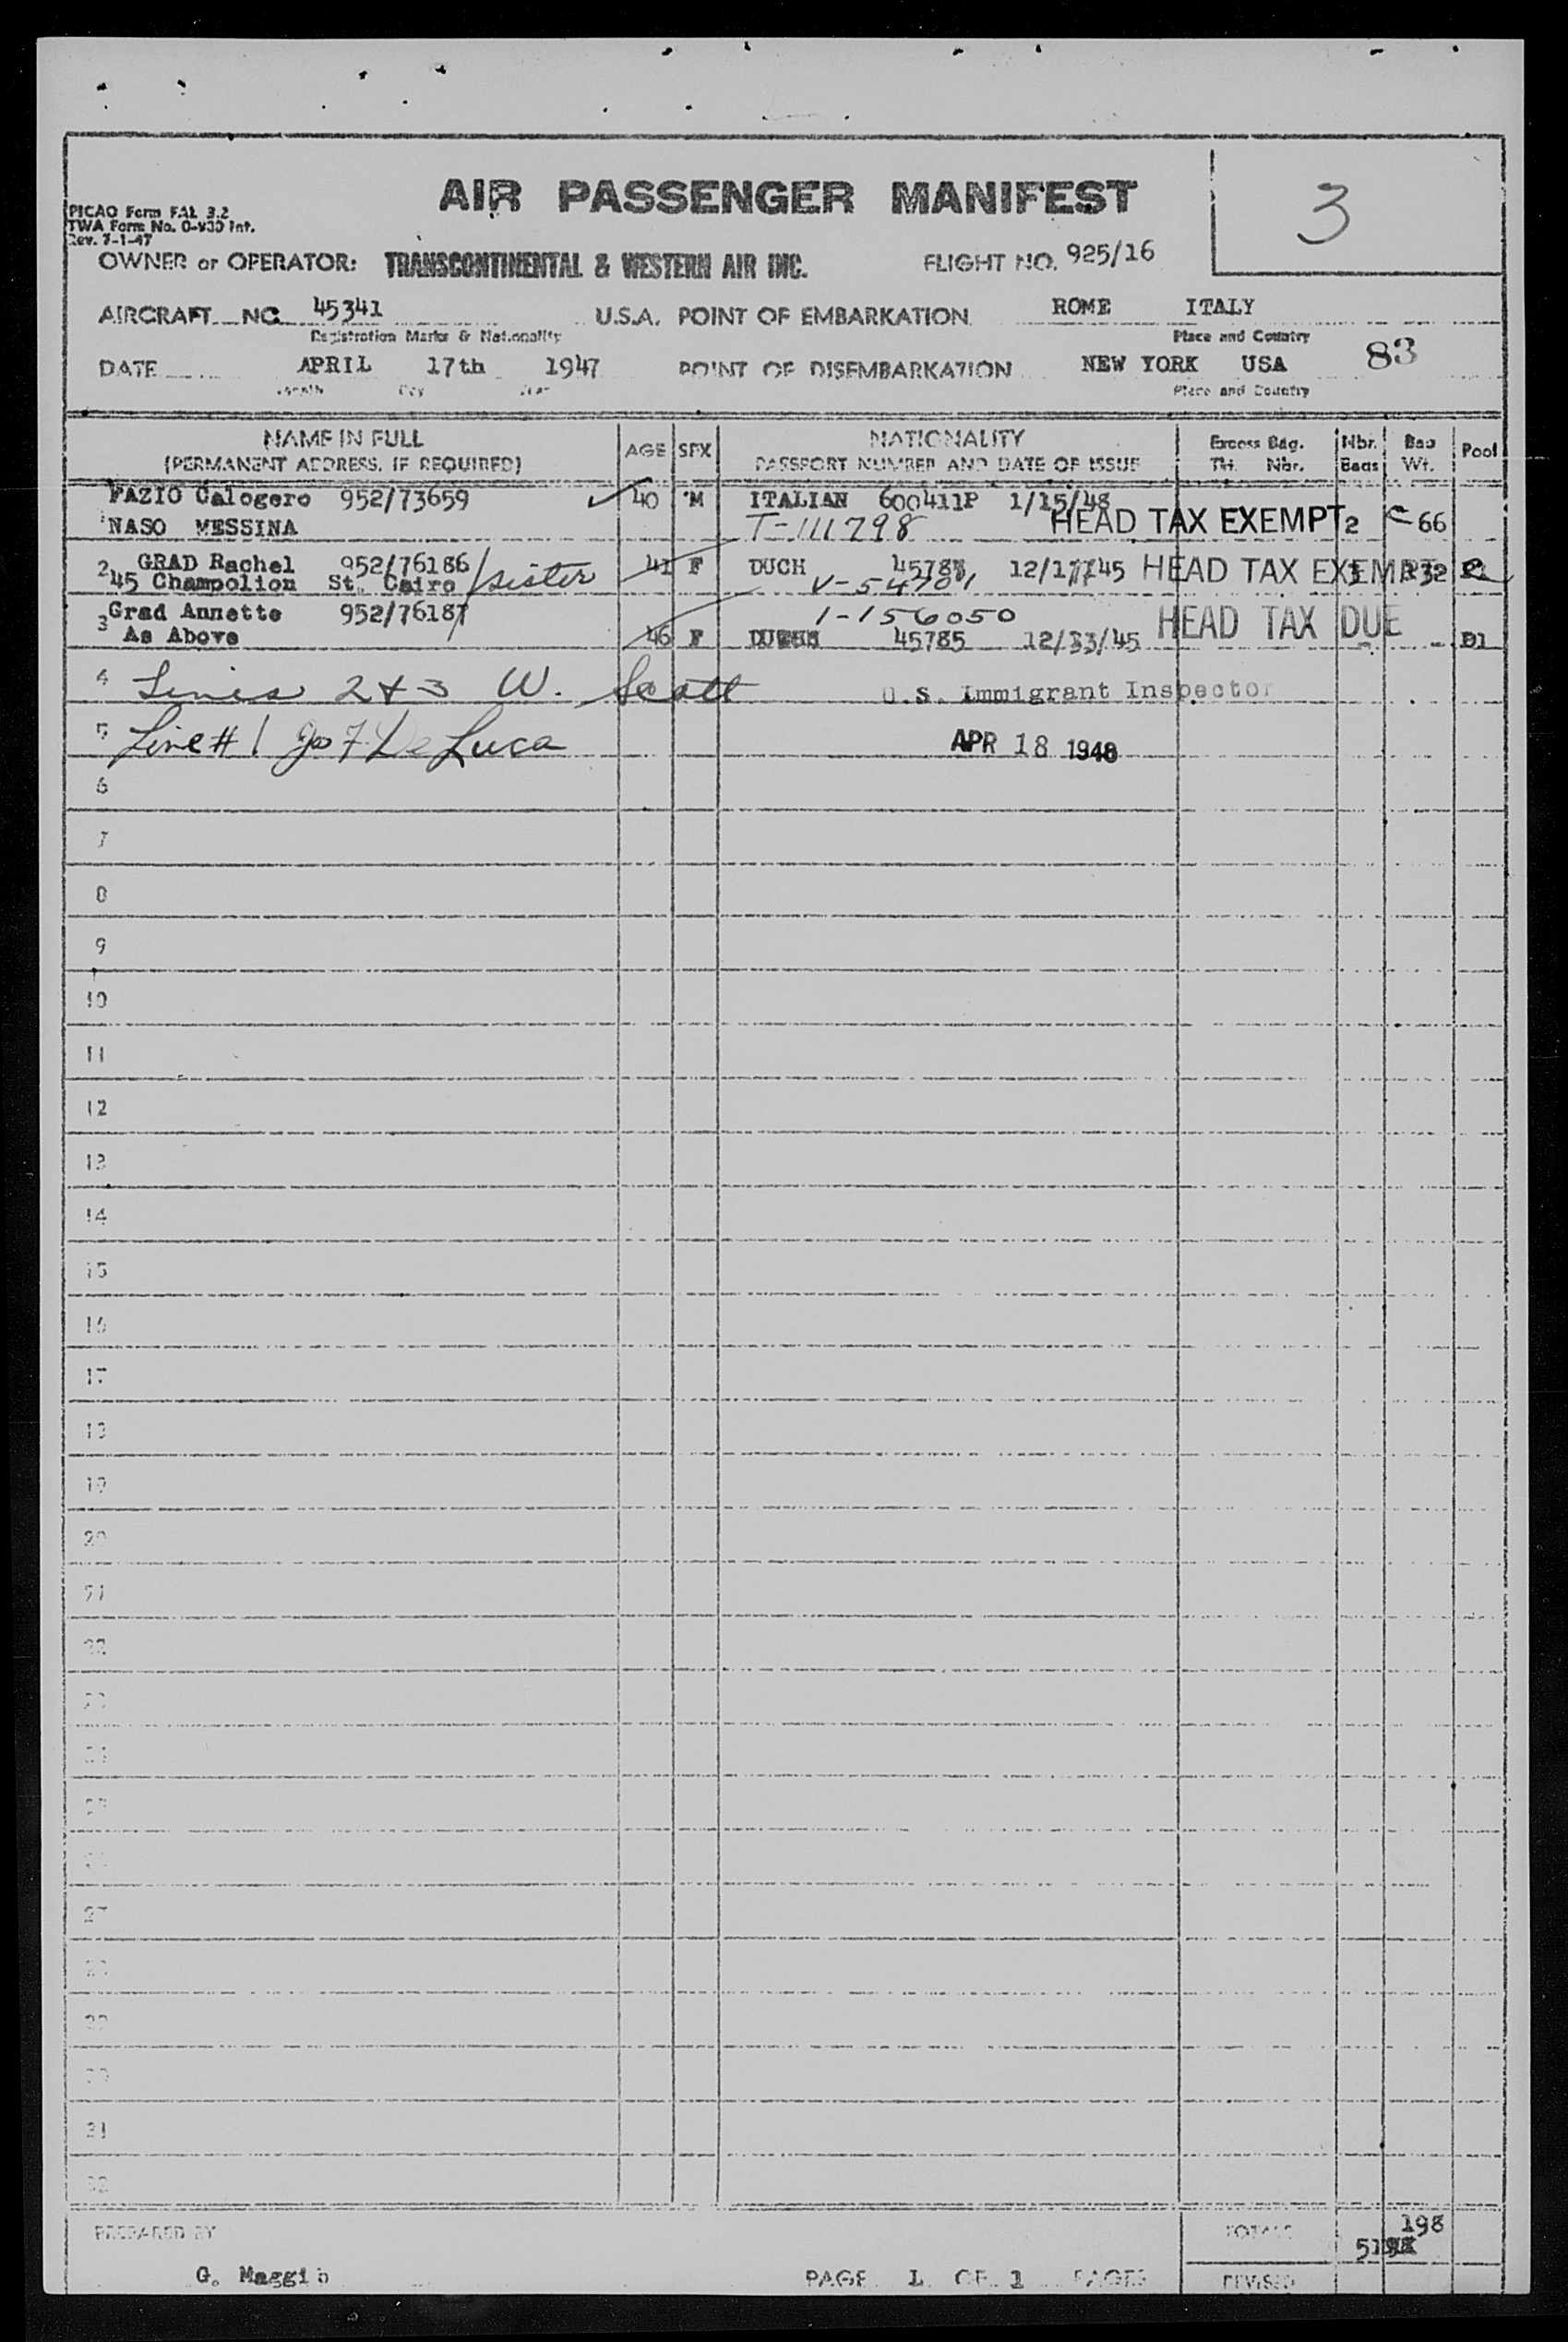 AIR PASSENGER MANIFEST
3
PICAO Form FAL 3.2
TWA Form No. O-930 Int.
Rev. 7-1-47
OWNER or OPERATOR: TRANSCONTINENTAL & WESTERN AIR INC. FLIGHT NO. 925/16
AIRCRAFT NO. 45341 U.S.A. POINT OF EMBARKATION ROME ITALY
Registration Marks & Nationality Place and Country
83
DATE APRIL 17th 1947 POINT OF DISEMBARKATION NEW YORK USA
Month Day Year Place and Country
NAME IN FULL AGE SEX NATIONALITY Excess Bag. Nbr. Bag Pool
(PERMANENT ADDRESS, IF REQUIRED) PASSPORT NUMBER AND DATE OF ISSUE Tkt. Nbr. Bags Wt.
FAZIO Calogero 952/73659 40 M ITALIAN 600411P 1/15/48
1 NASO MESSINA T-111798 HEAD TAX EXEMPT 2 66
2 GRAD Rachel 952/76186 41 F DUCH 12/17/45 HEAD TAX EXEMPT
45 Champolion St. Cairo /sister
3 Grad Annette 952/76187 1-156050 HEAD TAX DUE
As Above 46 F 45785 /45
4 Lines 2 & 3 W. Scott U.S. Immigrant Inspector
5 Line # 1 Jos F De Luca APR 18 1948
6
7
8
9
10
11
12
13
14
15
16
17
18
19
20
21
22
23
24
25
26
27
28
29
30
31
32
PREPARED BY TOTALS 198
G. Maggi PAGE 1 OF 1 PAGES REVISED